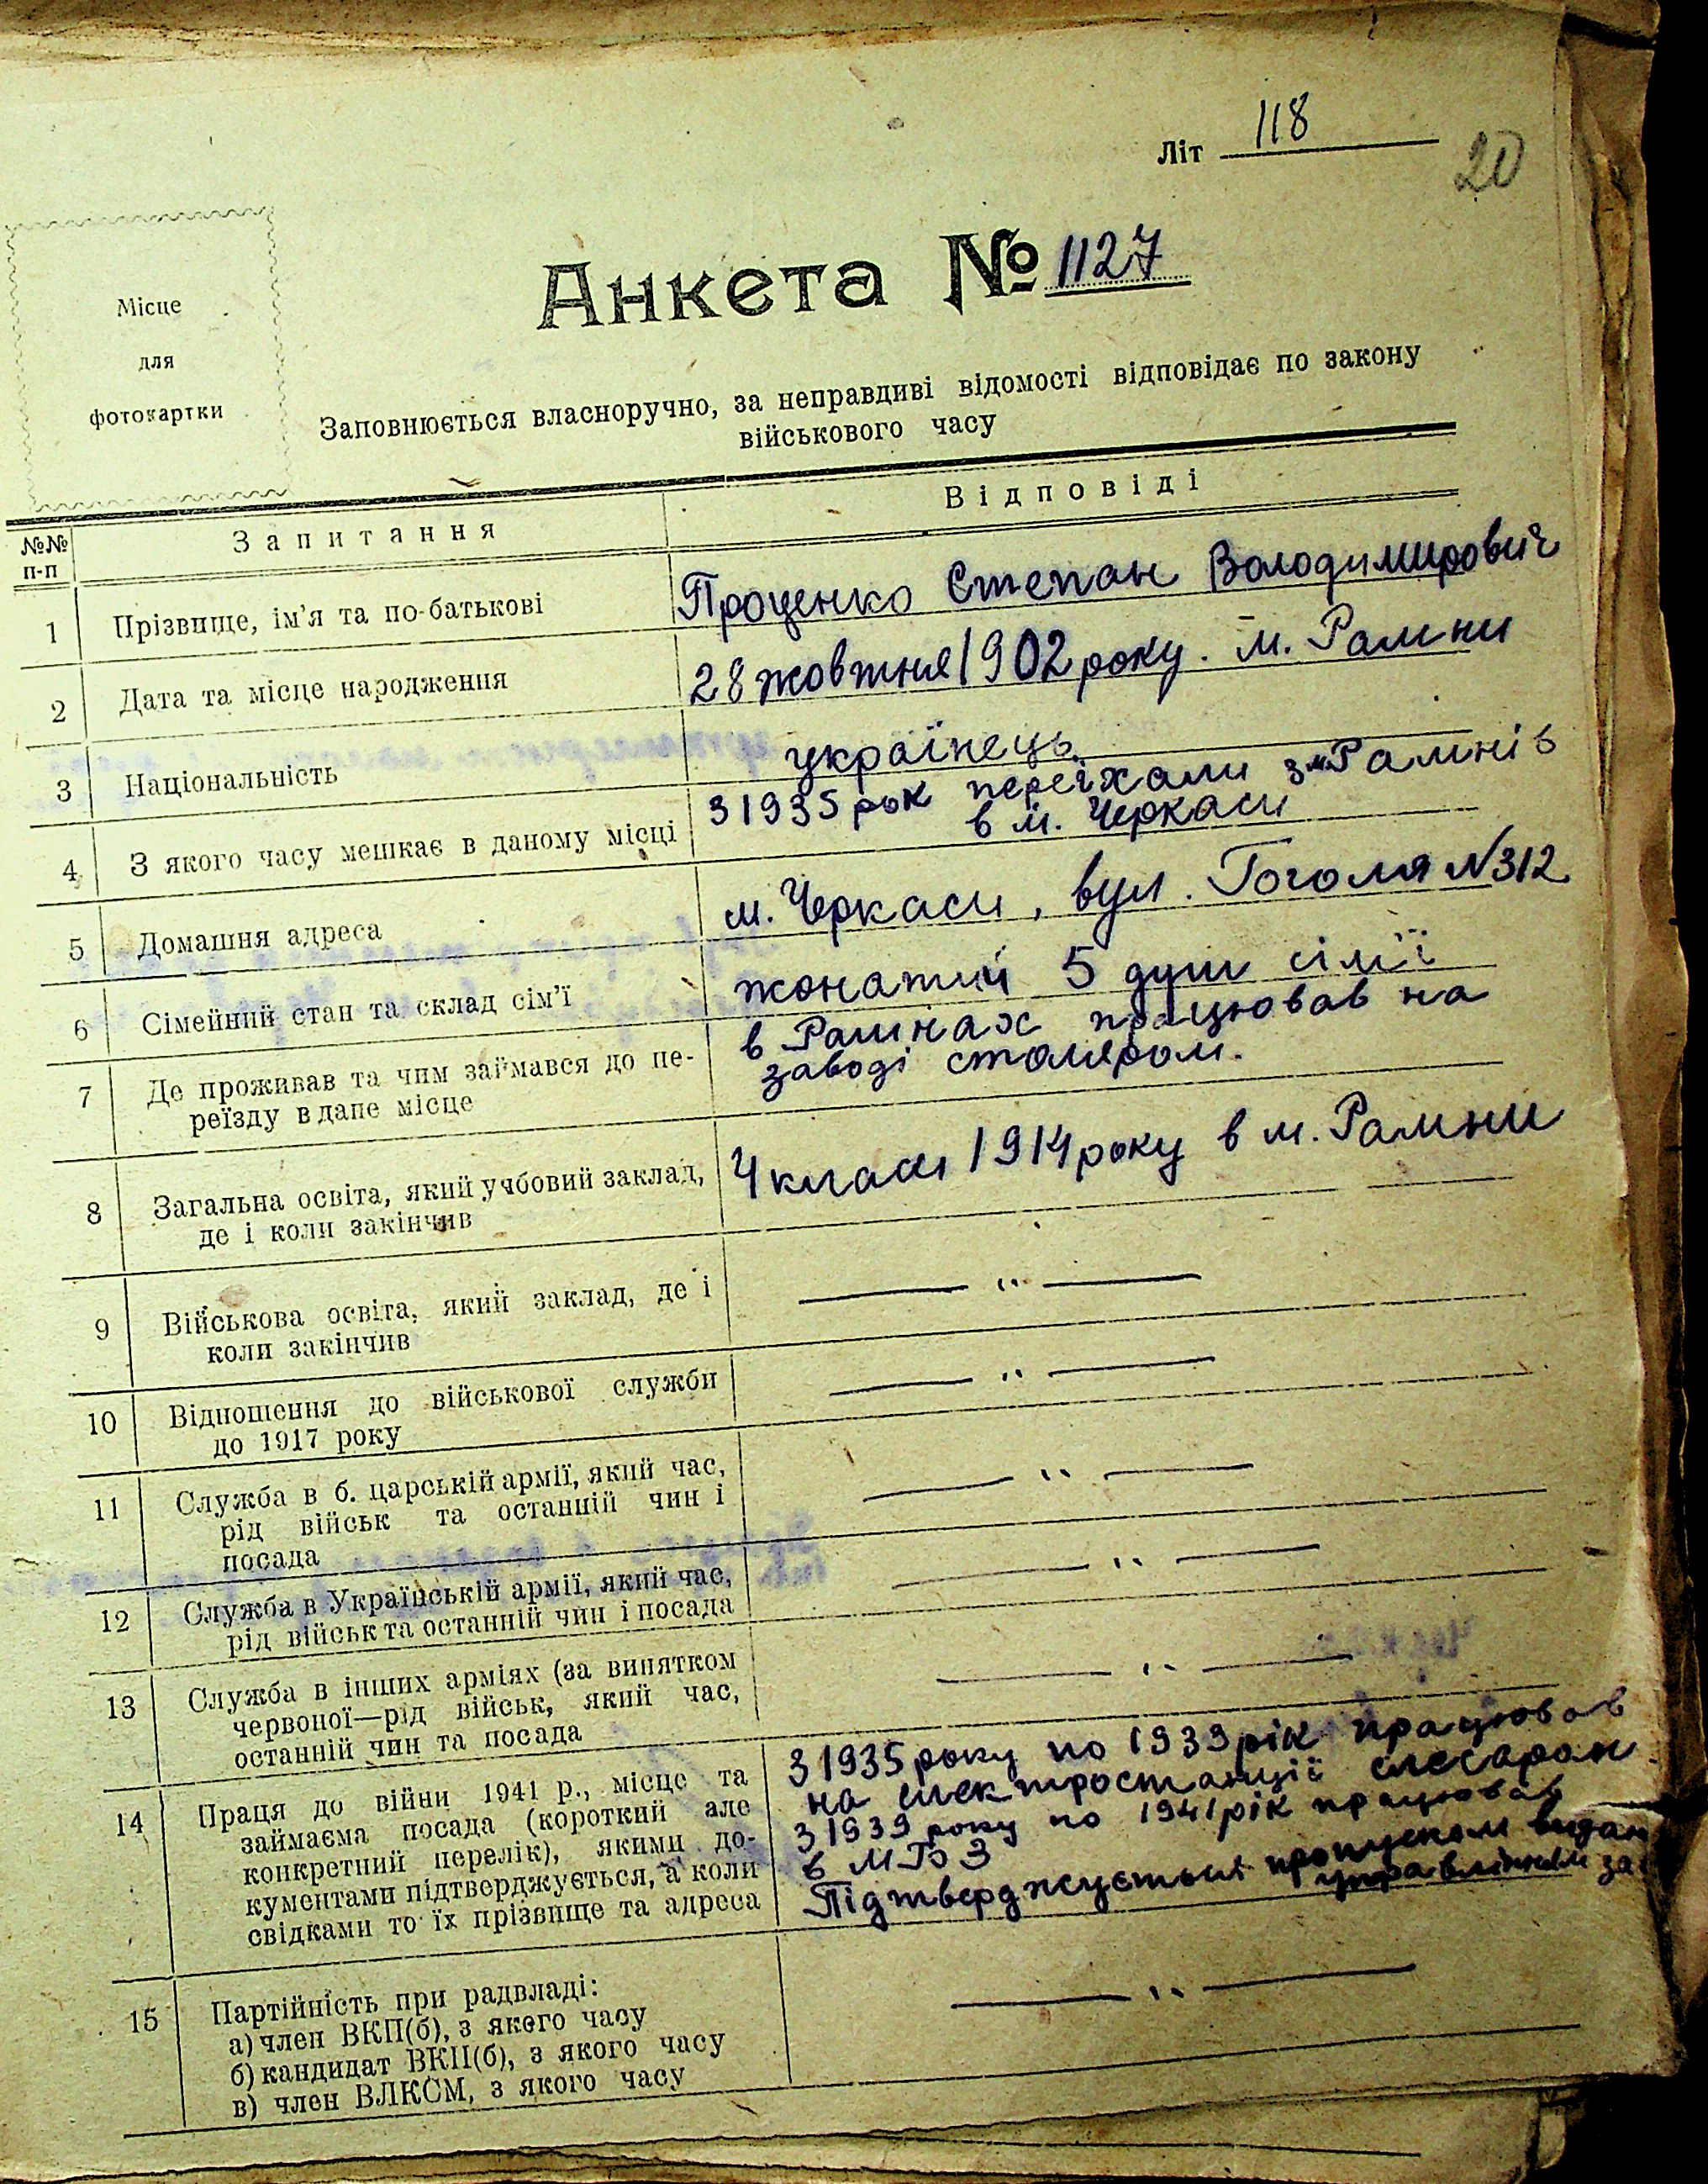 Літ 118
20
Місце
для
фотокартки
Анкета № 1127
Заповнюється власноручно, за неправдиві відомості відповідає по закону
військового часу
№№ п-п
Запитання
Відповіді
1
Прізвище, ім'я та по-батькові
Проценко Степан Володимирович
2
Дата та місце народження
28 жовтня 1902 року. м. Рамни
3
Національність
українець
4
З якого часу мешкає в даному місці
З 1935 рок переїхали з м Рамнів
в м. Черкаси
5
Домашня адреса
м. Черкаси, вул. Гоголя №312
6
Сімейний стан та склад сім'ї
жонатий 5 душ сімї
7
Де проживав та чим займався до пе-
реїзду в дане місце
в Рамнах працював на
заводі столяром.
8
Загальна освіта, який учбовий заклад,
де і коли закінчив
4 класи 1914 року в м. Рамни
9
Військова освіта, який заклад, де і
коли закінчив
— " —
10
Відношення до військової служби
до 1917 року
— " —
11
Служба в б. царській армії, який час,
рід військ та останній чин і
посада
— " —
12
Служба в Українській армії, який час,
рід військ та останній чин і посада
— " —
13
Служба в інших арміях (за винятком
червоної—рід військ, який час,
останній чин та посада
— " —
14
Праця до війни 1941 р., місце та
займаєма посада (короткий але
конкретний перелік), якими до-
кументами підтверджується, а коли
свідками то їх прізвище та адреса
З 1935 року по 1939 рік працював
на електростанції слесаром
З 1939 року по 1941 рік працював
в МТБ З
Підтверджується пропуском видан
управлінням за
15
Партійність при радвладі:
а) член ВКП(б), з якого часу
б) кандидат ВКП(б), з якого часу
в) член ВЛКСМ, з якого часу
— " —